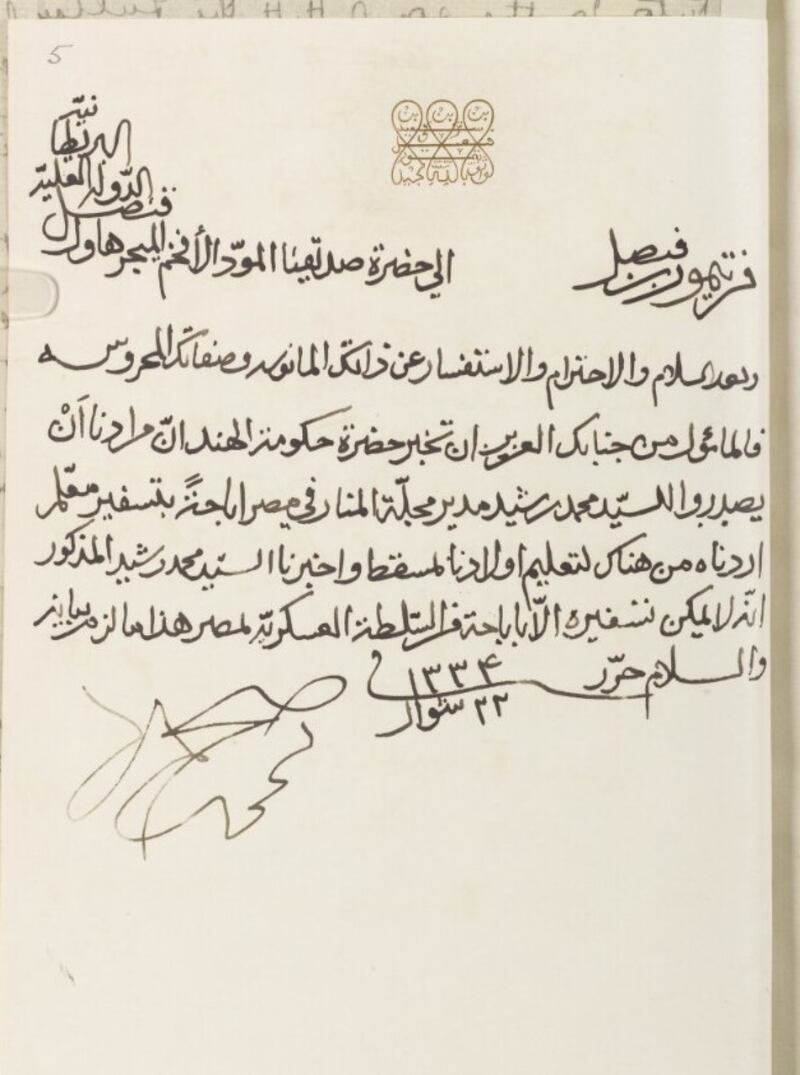 5
من تيمور بن فيصل
الي حضرة صديقنا المودّ الأفخم الميجر هاول
قنصل
الدولة العليّة
البريطا
نيّة
وبعد السلام والاحترام والاستفسار عن ذاتك المانوسه وصفاتك المحروسه
فالمامٔول من جنابك العزيز ان تخبر حضرة حكومة الهند انّ مرادنا اَنْ
يصدروا للسيّد محمد رشيد مدير مجلّة المنار في مصر اباحةً بتسفير معلّم
اردناه من هناك لتعليم اولادنا لمسقط واخبرنا السيّد محمد رشيد المذكور
انّه لا يمكن تسفيره الاّ باباحة من السّلطة العسكريّة بمصر هذا ما لزم بيانه
والسلام حرّر
٢٢ شوال ١٣٣٤